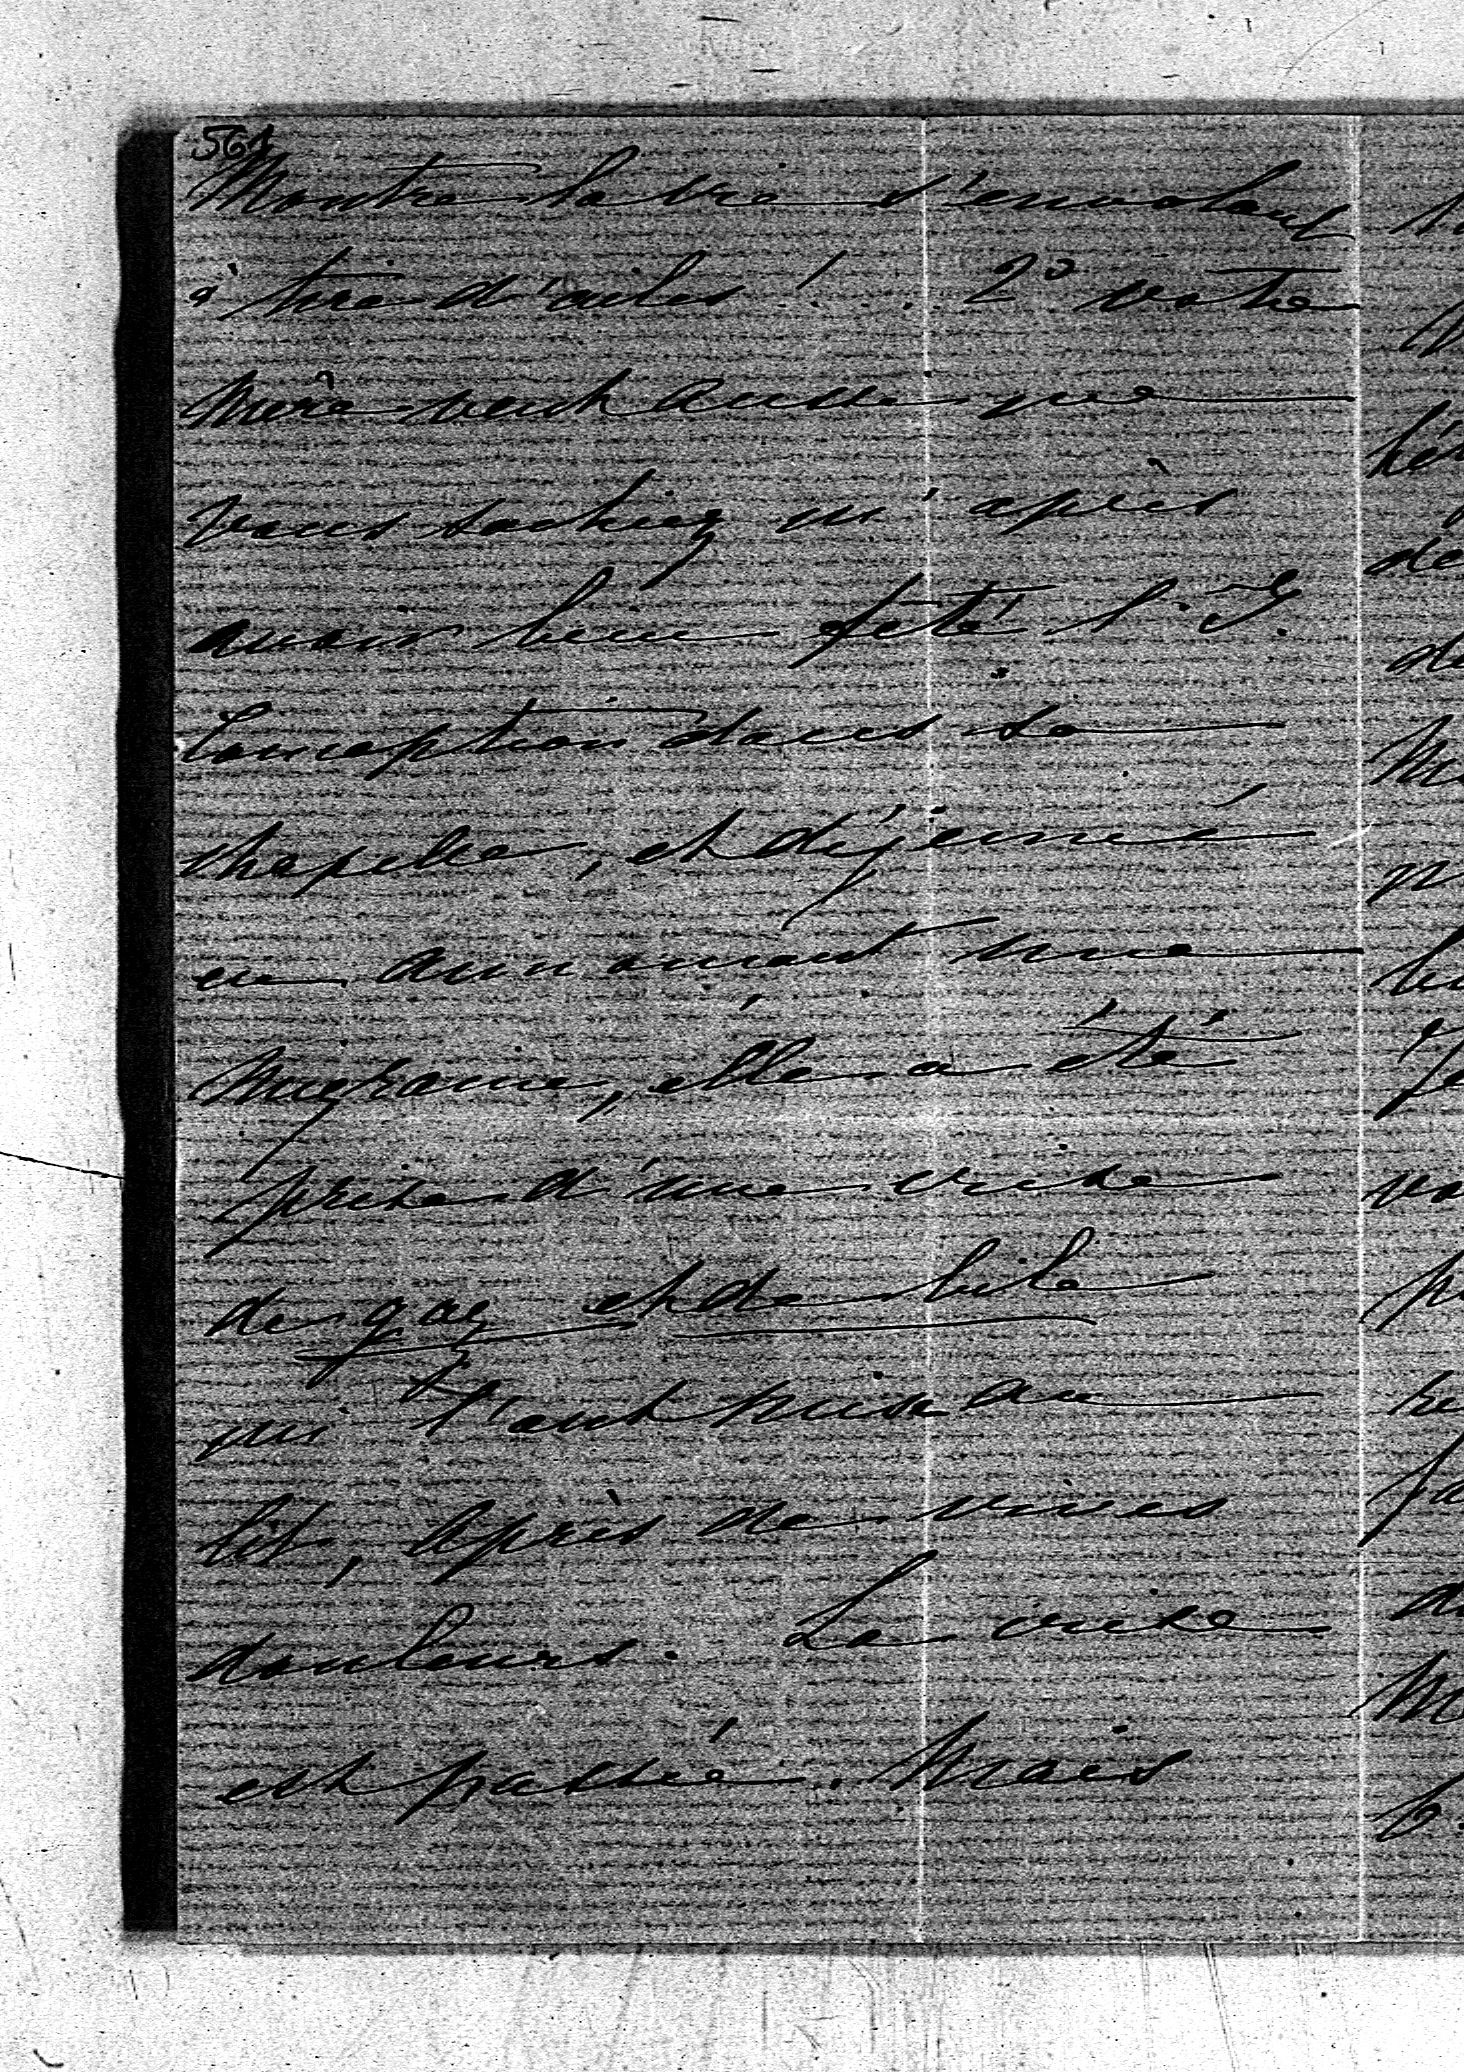 561
Montre la vie s'envolant
à tire d'ailes !.. 2° votre
Mère veut aussi que
vous sachiez qu'après
avoir bien fêté l'I.
Conception dans sa
chapelle, et déjeuné
en annonçant une
Migraine, elle a été
prise d'une crise
de gaz et de bile
qui l'ont mise au
lit, après de vives
douleurs. La crise
est passée. Mais